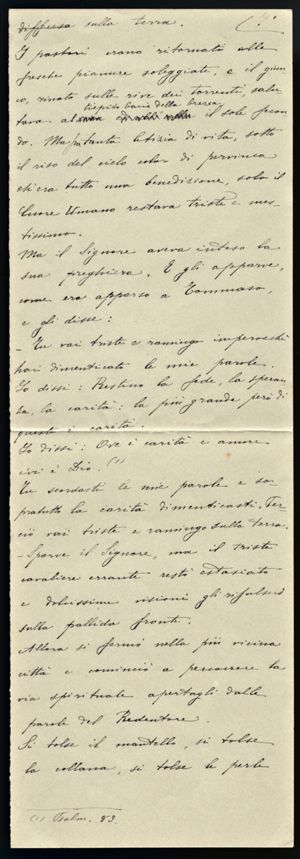 diffusa sulla terra.
I pastori erano ritornati alle
fresche pianure soleggiate, e il giun-
co, rinato sulle rive dei torrenti, salu-
tava al tiepido bacio della brezza il sole fecon-
do. Ma tanta letizia di vita, sotto
il riso del cielo color di pervinca
ch'era tutto una benedizione, solo il
Cuore Umano restava triste e mes-
tissimo.
Ma il Signore aveva inteso la
sua preghiera. E gli apparve,
come era apparso a Tommaso,
e gli disse:
- Tu vai triste e ramingo imperocchè
hai dimenticato le mie parole.
Io dissi: Restino la fede, la speran-
za, la carità: la più grande però di
queste è carità.
Io dissi: Ove è carità e amore
ivi è Dio. (1)
Tu scordasti le mie parole e so-
pratutto la carità dimenticasti. Per-
ciò vai triste e ramingo sulla terra.
- Sparve il Signore, ma il triste
cavaliere errante restò estasiato
e dolcissime visioni gli rifulsero
sulla pallida fronte.
Allora si fermò nella più vicina
città e cominciò a percorrere la
via spirituale apertagli dalle
parole del Redentore.
Si tolse il mantello, si tolse
la collana, si tolse le perle
(1) Psalm. 83.